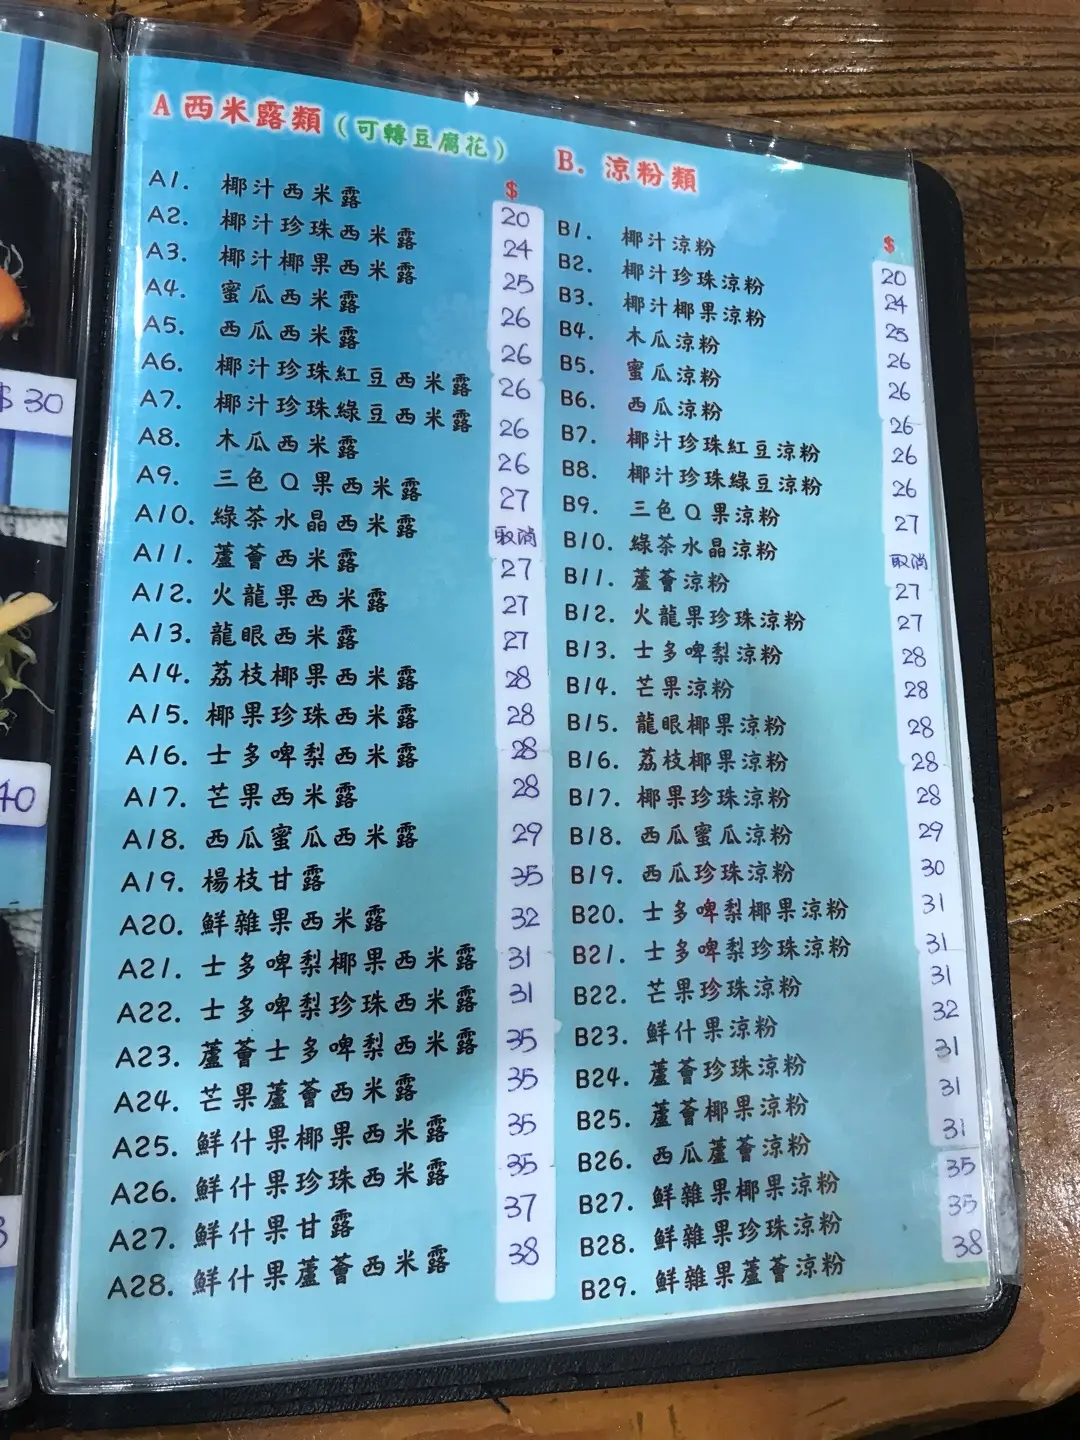 $30
A 西米露類(可轉豆腐花)
$
A1. 椰汁西米露 20
A2. 椰汁珍珠西米露 24
A3. 椰汁椰果西米露 25
A4. 蜜瓜西米露 26
A5. 西瓜西米露 26
A6. 椰汁珍珠紅豆西米露 26
A7. 椰汁珍珠綠豆西米露 26
A8. 木瓜西米露 26
A9. 三色Q果西米露 27
A10. 綠茶水晶西米露 取消
A11. 蘆薈西米露 27
A12. 火龍果西米露 27
A13. 龍眼西米露 27
A14. 荔枝椰果西米露 28
A15. 椰果珍珠西米露 28
A16. 士多啤梨西米露 28
A17. 芒果西米露 28
A18. 西瓜蜜瓜西米露 29
A19. 楊枝甘露 35
A20. 鮮雜果西米露 32
A21. 士多啤梨椰果西米露 31
A22. 士多啤梨珍珠西米露 31
A23. 蘆薈士多啤梨西米露 35
A24. 芒果蘆薈西米露 35
A25. 鮮什果椰果西米露 35
A26. 鮮什果珍珠西米露 35
A27. 鮮什果甘露 37
A28. 鮮什果蘆薈西米露 38
B. 涼粉類
$
B1. 椰汁涼粉 20
B2. 椰汁珍珠涼粉 24
B3. 椰汁椰果涼粉 25
B4. 木瓜涼粉 26
B5. 蜜瓜涼粉 26
B6. 西瓜涼粉 26
B7. 椰汁珍珠紅豆涼粉 26
B8. 椰汁珍珠綠豆涼粉 26
B9. 三色Q果涼粉 27
B10. 綠茶水晶涼粉 取消
B11. 蘆薈涼粉 27
B12. 火龍果珍珠涼粉 27
B13. 士多啤梨涼粉 28
B14. 芒果涼粉 28
B15. 龍眼椰果涼粉 28
B16. 荔枝椰果涼粉 28
B17. 椰果珍珠涼粉 28
B18. 西瓜蜜瓜涼粉 29
B19. 西瓜珍珠涼粉 30
B20. 士多啤梨椰果涼粉 31
B21. 士多啤梨珍珠涼粉 31
B22. 芒果珍珠涼粉 31
B23. 鮮什果涼粉 32
B24. 蘆薈珍珠涼粉 31
B25. 蘆薈椰果涼粉 31
B26. 西瓜蘆薈涼粉 31
B27. 鮮雜果椰果涼粉 35
B28. 鮮雜果珍珠涼粉 35
B29. 鮮雜果蘆薈涼粉 38